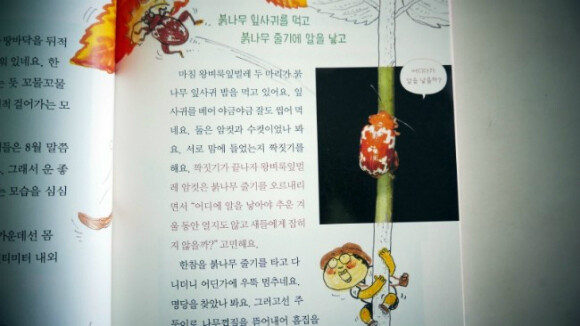 왕바닥을 뒤적
워 있네요. 한
듯 꼬물꼬물
적 걸어가는 모
들은 8월 말쯤
. 그래서 운 좋
는 모습을 심심
가운데선 몸
티미터 내외
붉나무 잎사귀를 먹고
붉나무 줄기에 알을 낳고
마침 왕벼룩잎벌레 두 마리가 붉
나무 잎사귀 밥을 먹고 있어요. 잎
사귀를 베어 야금야금 잘도 씹어 먹
네요. 둘은 암컷과 수컷이었나 봐
요. 서로 맘에 들었는지 짝짓기를
해요. 짝짓기가 끝나자 왕벼룩잎벌
레 암컷은 붉나무 줄기를 오르내리
면서 “어디에 알을 낳아야 추운 겨
울 동안 얼지도 않고 새들에게 잡히
지 않을까?” 고민해요.
한참을 붉나무 줄기를 타고 다
니더니 어딘가에 우뚝 멈추네요.
명당을 찾았나 봐요. 그러고선 주
둥이로 나무껍질을 뜯어내어 흠집을
어디에다가
알을 낳을까?